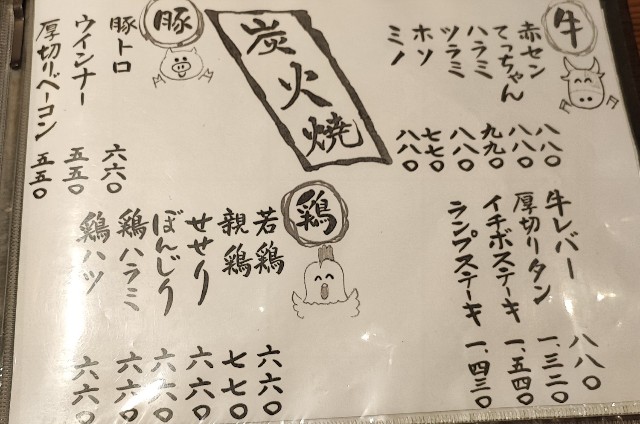 牛
赤セン 八八〇
てっちゃん 八八〇
ハラミ 九九〇
ツラミ 八八〇
ホソ 七七〇
ミノ 八八〇
牛レバー 八八〇
厚切りタン 一、三二〇
イチボステーキ 一、五四〇
ランプステーキ 一、四三〇
炭火焼
豚
豚トロ 六六〇
ウインナー 五五〇
厚切りベーコン 五五〇
鶏
若鶏 六六〇
親鶏 七七〇
せせり 六六〇
ぼんじり 六六〇
鶏ハラミ 六六〇
鶏ハツ 六六〇